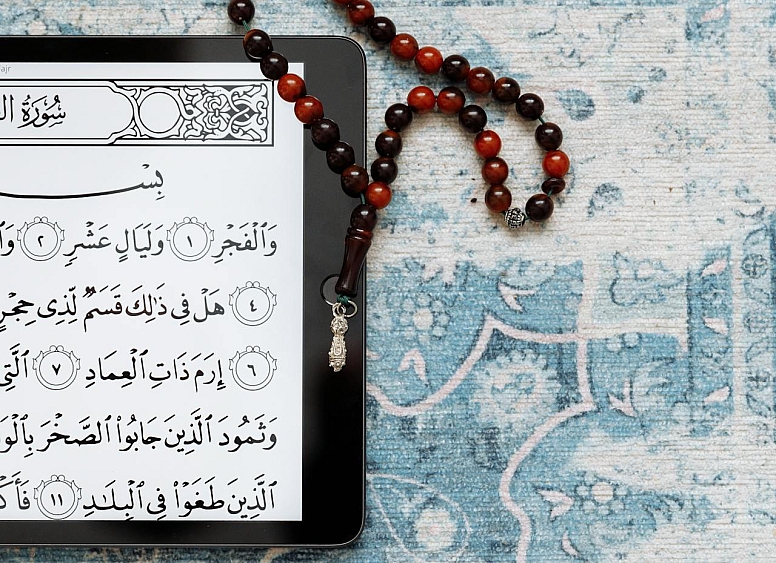 ajr
سُورَةُ
بِسْ
وَٱلْفَجْرِ ١ وَلَيَالٍ عَشْرٍ ٢
٤ هَلْ فِى ذَٰلِكَ قَسَمٌ لِّذِى حِجْرٍ
٦ إِرَمَ ذَاتِ ٱلْعِمَادِ ٧ ٱلَّتِى
وَثَمُودَ ٱلَّذِينَ جَابُوا۟ ٱلصَّخْرَ
ٱلَّذِينَ طَغَوْا۟ فِى ٱلْبِلَـٰدِ ١١